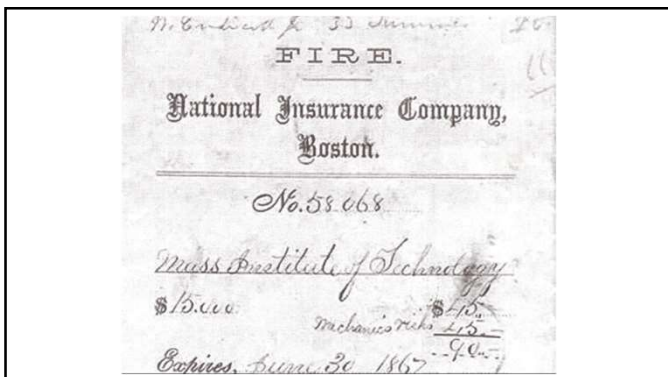 W. Endicott Jr 33 Summer
FIRE.
National Insurance Company,
Boston.
No. 58068
Mass Institute of Technology
$15.000 $45.-
Mechanics Risks 45.-
90.-
Expires, June 30 1867